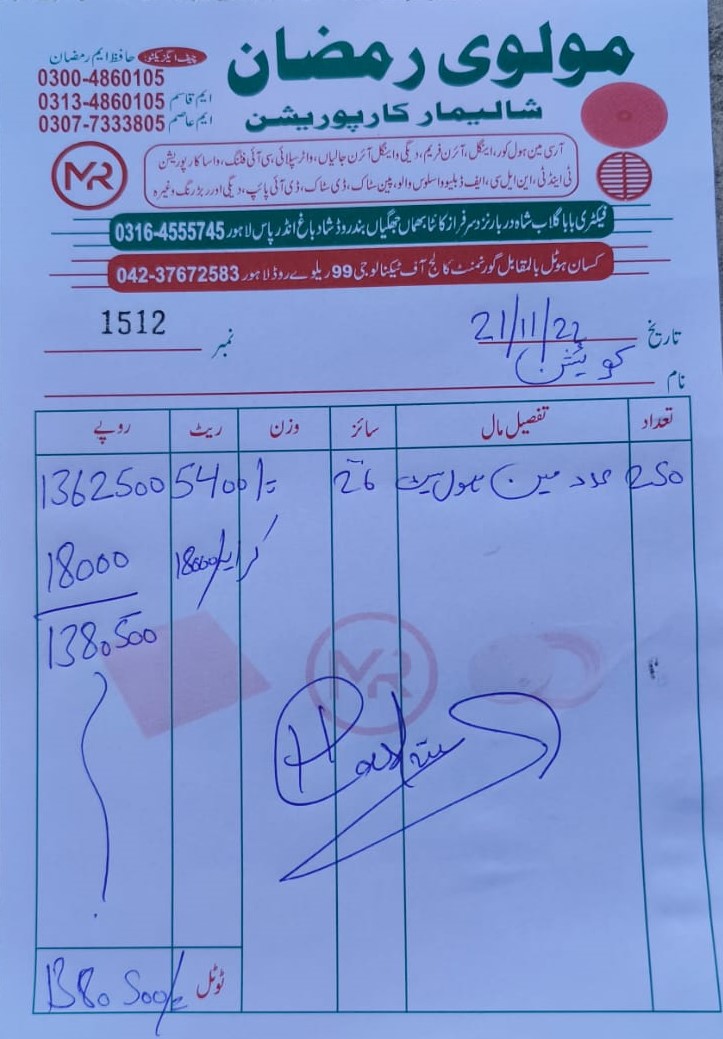 مولوی رمضان
چیف ایگزیکٹو: حافظ ایم رمضان
0300-4860105
ایم قاسم 0313-4860105
ایم عاصم 0307-7333805
شالیمار کارپوریشن
MR
آرسی مین ہول کور، اینگل، آئرن فریم، دیگی و اینگل آئرن جالیاں، واٹر سپلائی، سی آئی فٹنگ، واسا کارپوریشن
ٹی اینڈ ٹی، این ایل سی، ایف ڈبلیو او سلوس والو، پین سٹاک، ڈی سٹاک، ڈی آئی پائپ، دیگی اور ربڑ رنگ وغیرہ
فیکٹری بابا گلاب شاہ دربار نزد سرفراز کانٹا بھماں جھگیاں بند روڈ شاد باغ انڈر پاس لاہور 0316-4555745
کسان ہوٹل بالمقابل گورنمنٹ کالج آف ٹیکنالوجی 99 ریلوے روڈ لاہور 042-37672583
تاریخ 21/11/22
نمبر 1512
نام کوٹیشن
تعداد تفصیل مال سائز وزن ریٹ روپے
250 عدد مین ہول سیٹ 26 5400/- 1362500
کرایہ 18000/ 18000
1380500
MR
ٹوٹل 1380500/-